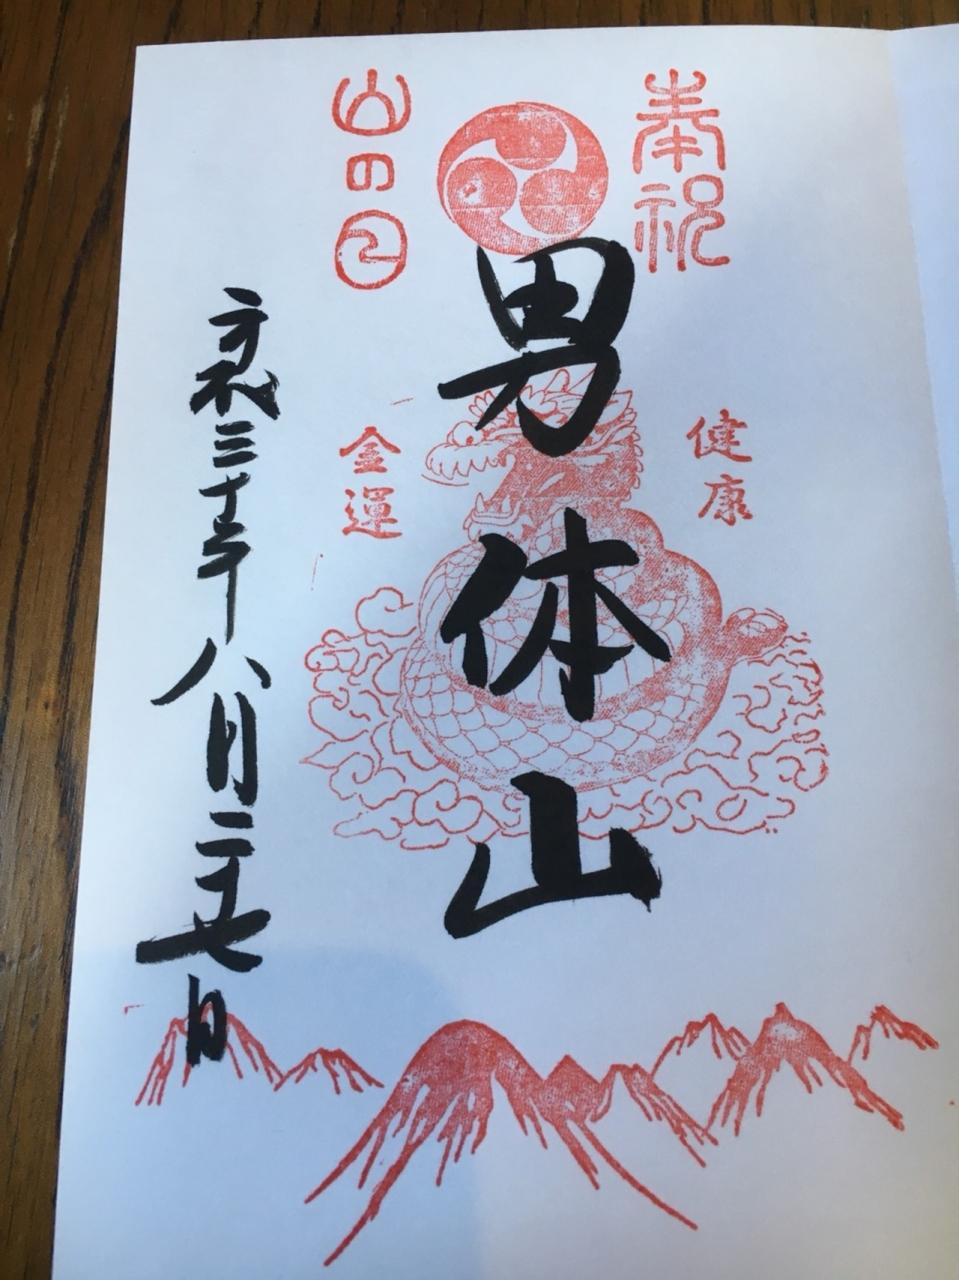 奉祝
男体山
山の日
健康
金運
平成三十年八月二十七日